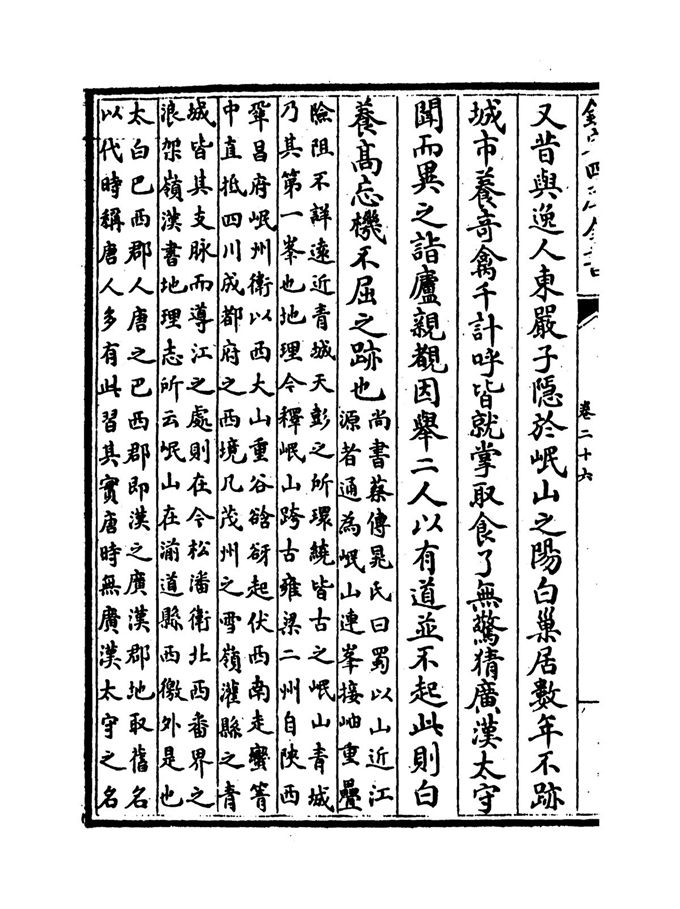 欽定四庫全書
卷二十六
又昔與逸人東嚴子隱於岷山之陽白巢居數年不跡
城市養竒禽千計呼皆就掌取食了無驚猜廣漢太守
聞而異之詣廬親覩因舉二人以有道並不起此則白
養髙忘機不屈之跡也
尚書蔡傳晁氏曰蜀以山近江
源者通為岷山連峯接岫重疊
險阻不詳遠近青城天彭之所環繞皆古之岷山青城
乃其第一峯也地理今釋岷山跨古雍梁二州自陜西
鞏昌府岷州衛以西大山重谷谽谺起伏西南走蠻箐
中直抵四川成都府之西境凡茂州之雪嶺灌縣之青
城皆其支脉而導江之處則在今松潘衛北西番界之
浪架嶺漢書地理志所云岷山在湔道縣西徼外是也
太白巴西郡人唐之巴西郡即漢之廣漢郡地取舊名
以代時稱唐人多有此習其實唐時無廣漢太守之名